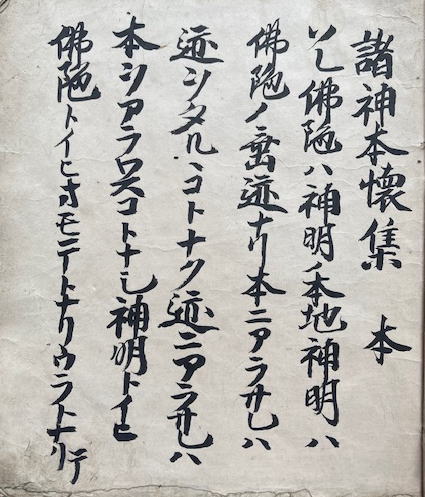 諸神本懷集　本
ソレ佛陁ハ神明ノ本地神明ハ
佛陁ノ垂迹ナリ本ニアラサレハ
迹ヲタルヽコトナク迹ニアラサレハ
本ヲアラハスコトナシ神明トイヒ
佛陁トイヒオモテトナリウラトナリテ